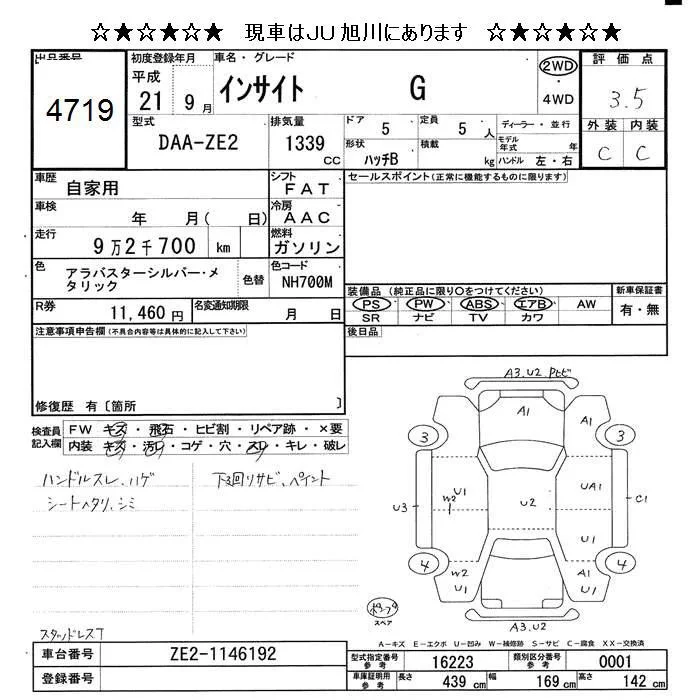 ☆★☆★☆★ 現車はJU旭川にあります ☆★☆★☆★
出品番号
4719
初度登録年月
平成
21 9 月
車名・グレード
インサイト G
2WD
4WD
評価点
3.5
外装 内装
C C
型式
DAA-ZE2
排気量
1339
CC
ドア
5
定員
5 人
ディーラー・並行
形状
ハッチB
積載
kg
モデル年式 年
ハンドル 左・右
車歴
自家用
シフト
FAT
セールスポイント(正常に機能するものに限ります)
車検
年 月( 日)
冷房
AAC
走行
9万2千700 km
燃料
ガソリン
色
アラバスターシルバー・メ
タリック
色替
色コード
NH700M
装備品(純正品に限り○をつけてください)
PS PW ABS エアB AW
SR ナビ TV カワ
新車保証書
有・無
R券
11,460 円
名変通知期限
月 日
後日品
注意事項申告欄(不具合内容等は具体的に記入して下さい)
修復歴 有〔箇所 〕
検査員
記入欄
FW キズ・飛石・ヒビ割・リペア跡・×要
内装 キズ・汚レ・コゲ・穴・スレ・キレ・破レ
ハンドルスレ、ハゲ
シートヘタリ、シミ
下回リサビ、ペイント
スタッドレスT
A3.U2 PセビA1
3 3
U3
W2
U1
U2
UA1
C1
U1
4 4
W2
U1
A1
U1
A3.U2
スペア
A-キズ E-エクボ U-凹み W-補修跡 S-サビ C-腐食 XX-交換済
車台番号
ZE2-1146192
登録番号
型式指定番号
参考
16223
類別区分番号
参考
0001
車庫証明用
参考
長さ
439 cm
幅
169 cm
高さ
142 cm